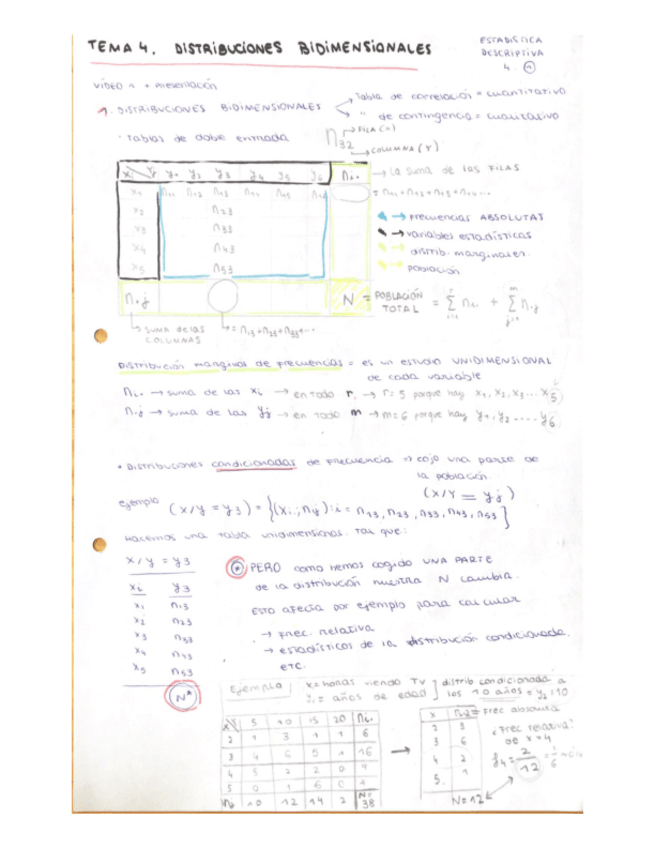 TEMA 4. DISTRIBUCIONES BIDIMENSIONALES
ESTADÍSTICA
DESCRIPTIVA
4. 1
VIDEO 1 + presentación
1. DISTRIBUCIONES BIDIMENSIONALES
Tabla de correlación = cuantitativo
" de contingencia = cualitativo
· Tablas de doble entrada
n32
FILA (x)
COLUMNA (Y)
X Y y1 y2 y3 y4 y5 y6 ni.
x1 n11 n12 n13 n14 n15 n16
x2 n23
x3 n33
x4 n43
x5 n53
n.j
N = POBLACIÓN TOTAL = Σ ni. + Σ n.j
→ la suma de las FILAS
= n11+n12+n13+n14...
→ frecuencias ABSOLUTAS
→ variables estadísticas
→ distrib. marginales
→ población
→ SUMA de las COLUMNAS
→ = n13+n23+n33+...
Distribución marginal de frecuencias = es un estudio UNIDIMENSIONAL
de cada variable
ni. → suma de las xi → en todo r. → r=5 porque hay x1, x2, x3... x5
n.j → suma de las yj → en todo m → m=6 porque hay y1, y2 .... y6
• Distribuciones condicionadas de frecuencia → cojo una parte de
la población
(X/Y = yj)
ejemplo (X/Y = y3) = {(xi; nij): i = n13, n23, n33, n43, n53}
Hacemos una tabla unidimensional tal que:
X/Y = y3
xi y3
x1 n13
x2 n23
x3 n33
x4 n43
x5 n53
N*
* PERO como hemos cogido UNA PARTE
de la distribución nuestra N cambia.
Esto afecta por ejemplo para calcular
→ Frec. relativa
→ estadísticos de la distribución condicionada.
etc.
Ejemplo
X = horas viendo TV
Y = años de edad
distrib condicionada a
los 10 años = y2 = 10
X Y 5 10 15 20 ni.
2 1 3 1 1 6
3 4 6 5 1 16
4 5 2 2 0 9
5 0 1 6 0 7
n.j 10 12 14 2 N=38
→
x = Frec absoluta
2 3
3 6
4 2
5 1
N=12
¿Frec relativa
de x=4
f4 = 2/12 = 1/6